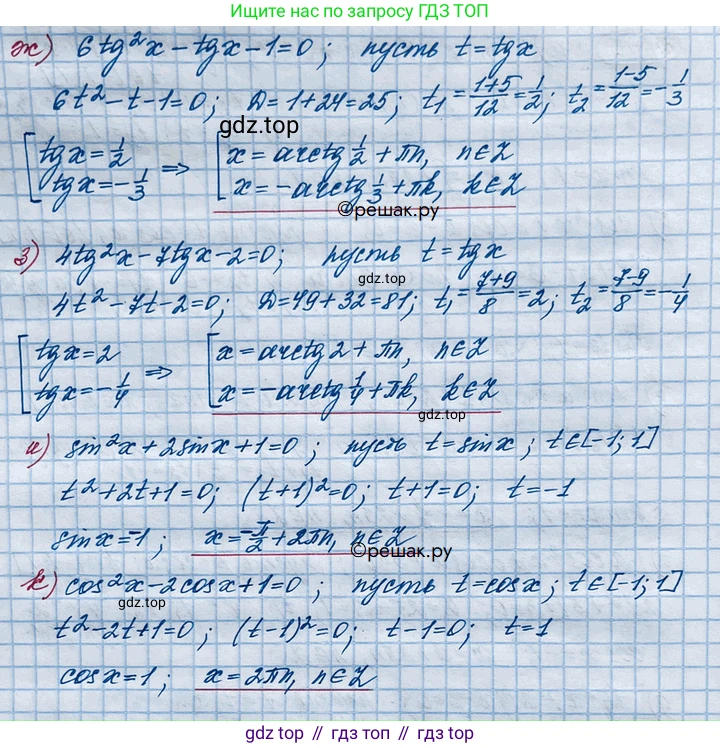 Ищите нас по запросу ГДЗ ТОП
ж) 6tg²x - tgx - 1 = 0; пусть t = tgx
6t² - t - 1 = 0; D = 1 + 24 = 25; t₁ = (1+5)/12 = 1/2; t₂ = (1-5)/12 = -1/3
gdz.top
[tgx = 1/2 ⇒ [x = arctg 1/2 + πn, n∈Z
tgx = -1/3 x = -arctg 1/3 + πk, k∈Z
@решак.ру
з) 4tg²x - 7tgx - 2 = 0; пусть t = tgx
gdz.top
4t² - 7t - 2 = 0; D = 49 + 32 = 81; t₁ = (7+9)/8 = 2; t₂ = (7-9)/8 = -1/4
[tgx = 2 ⇒ [x = arctg 2 + πn, n∈Z
tgx = -1/4 x = -arctg 1/4 + πk, k∈Z
gdz.top
и) sin²x + 2sinx + 1 = 0; пусть t = sinx; t∈[-1; 1]
t² + 2t + 1 = 0; (t+1)² = 0; t + 1 = 0; t = -1
sinx = -1; x = -π/2 + 2πn, n∈Z
@решак.ру
к) cos²x - 2cosx + 1 = 0; пусть t = cosx; t∈[-1; 1]
gdz.top
t² - 2t + 1 = 0; (t-1)² = 0; t - 1 = 0; t = 1
cosx = 1; x = 2πn, n∈Z
gdz.top // гдз.топ // гдз.top